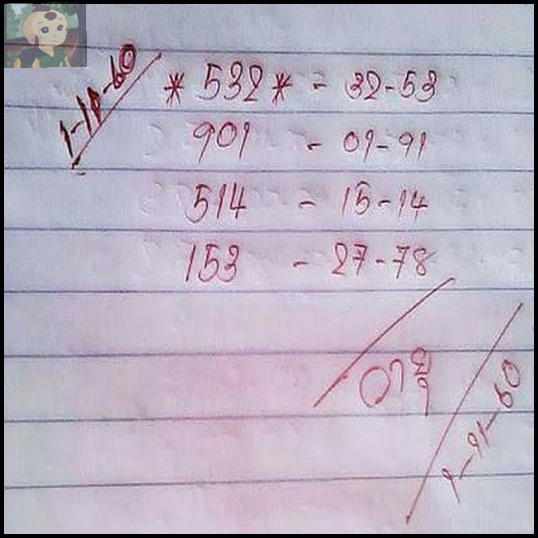 1-11-60
*532* - 32-53
901 - 01-91
514 - 15-14
153 - 27-78
วายุ
1-11-60